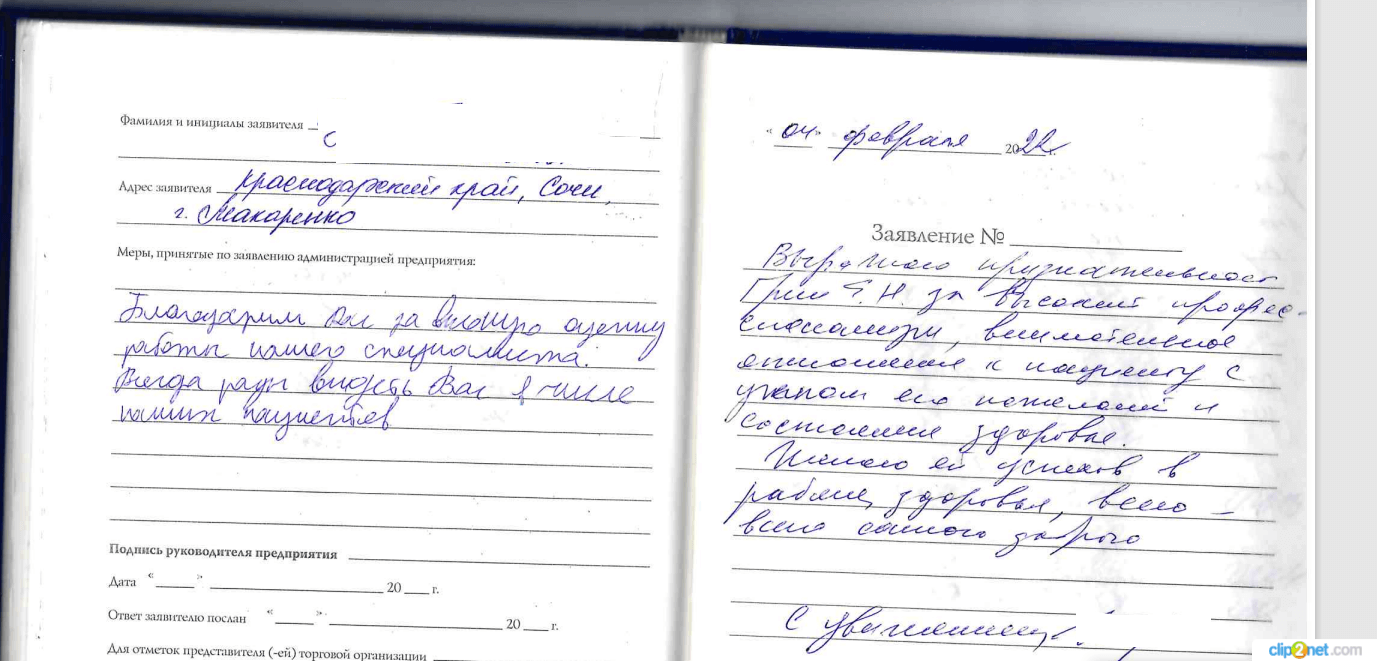 Фамилия и инициалы заявителя
С
Адрес заявителя Краснодарский край, Сочи,
г. Макаренко
Меры, принятые по заявлению администрацией предприятия:
Благодарим Вас за высокую оценку
работы нашего специалиста.
Всегда рады видеть Вас в числе
наших пациентов
Подпись руководителя предприятия
Дата « » 20 г.
Ответ заявителю послан « » 20 г.
Для отметок представителя (-ей) торговой организации
«04» февраля 2022г.
Заявление №
Выражаю признательность
Г.Н за высокий профес-
сионализм, внимательное
отношение к пациенту с
учетом его пожеланий и
состояния здоровья.
Желаю ей успехов в
работе, здоровья, всего-
всего самого доброго
С уважением,
clip2net.com